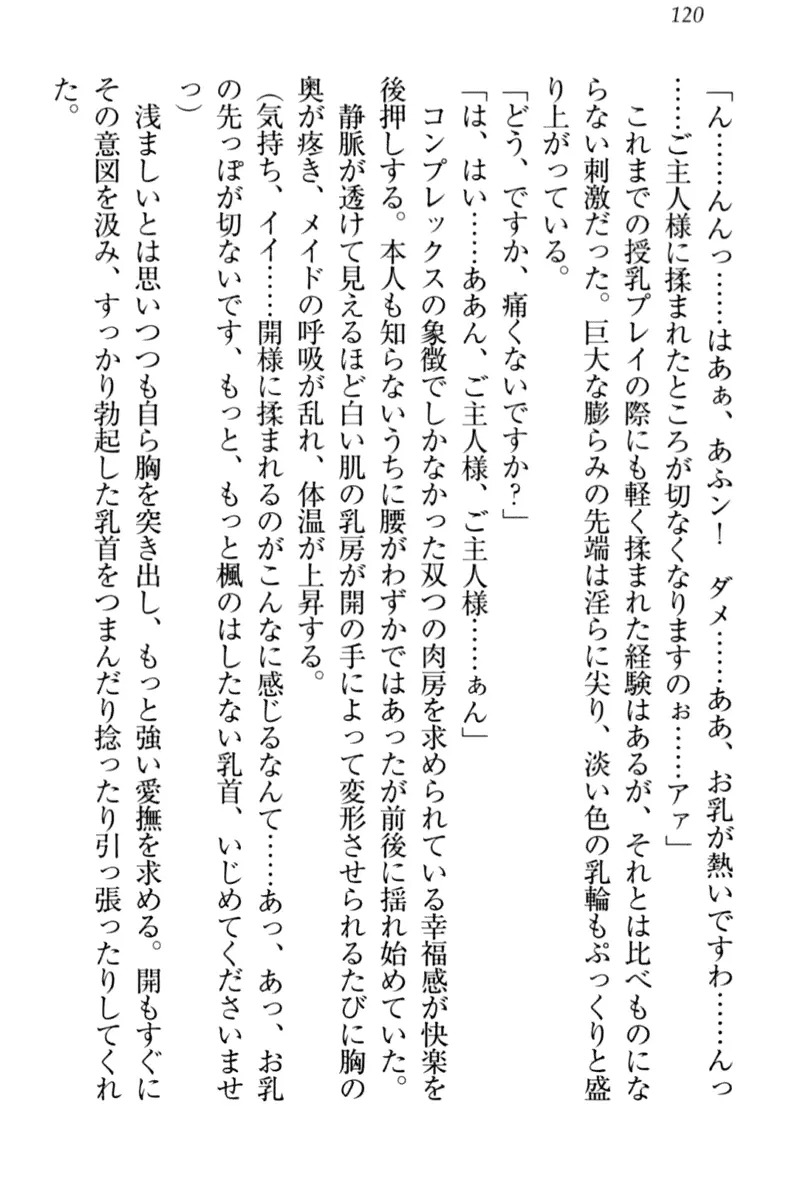 120
「ん……んんっ……はあぁ、あふン！　ダメ……ああ、お乳が熱いですわ……んっ
……ご主人様に揉まれたところが切なくなりますのぉ……アァ」
　これまでの授乳プレイの際にも軽く揉まれた経験はあるが、それとは比べものにな
らない刺激だった。巨大な膨らみの先端は淫らに尖り、淡い色の乳輪もぷっくりと盛
り上がっている。
「どう、ですか、痛くないですか？」
「は、はい……ああん、ご主人様、ご主人様……ぁん」
　コンプレックスの象徴でしかなかった双つの肉房を求められている幸福感が快楽を
後押しする。本人も知らないうちに腰がわずかではあったが前後に揺れ始めていた。
　静脈が透けて見えるほど白い肌の乳房が開の手によって変形させられるたびに胸の
奥が疼き、メイドの呼吸が乱れ、体温が上昇する。
（気持ち、イイ……開様に揉まれるのがこんなに感じるなんて……あっ、あっ、お乳
の先っぽが切ないです、もっと、もっと楓のはしたない乳首、いじめてくださいませ
っ）
　浅ましいとは思いつつも自ら胸を突き出し、もっと強い愛撫を求める。開もすぐに
その意図を汲み、すっかり勃起した乳首をつまんだり捻ったり引っ張ったりしてくれ
た。